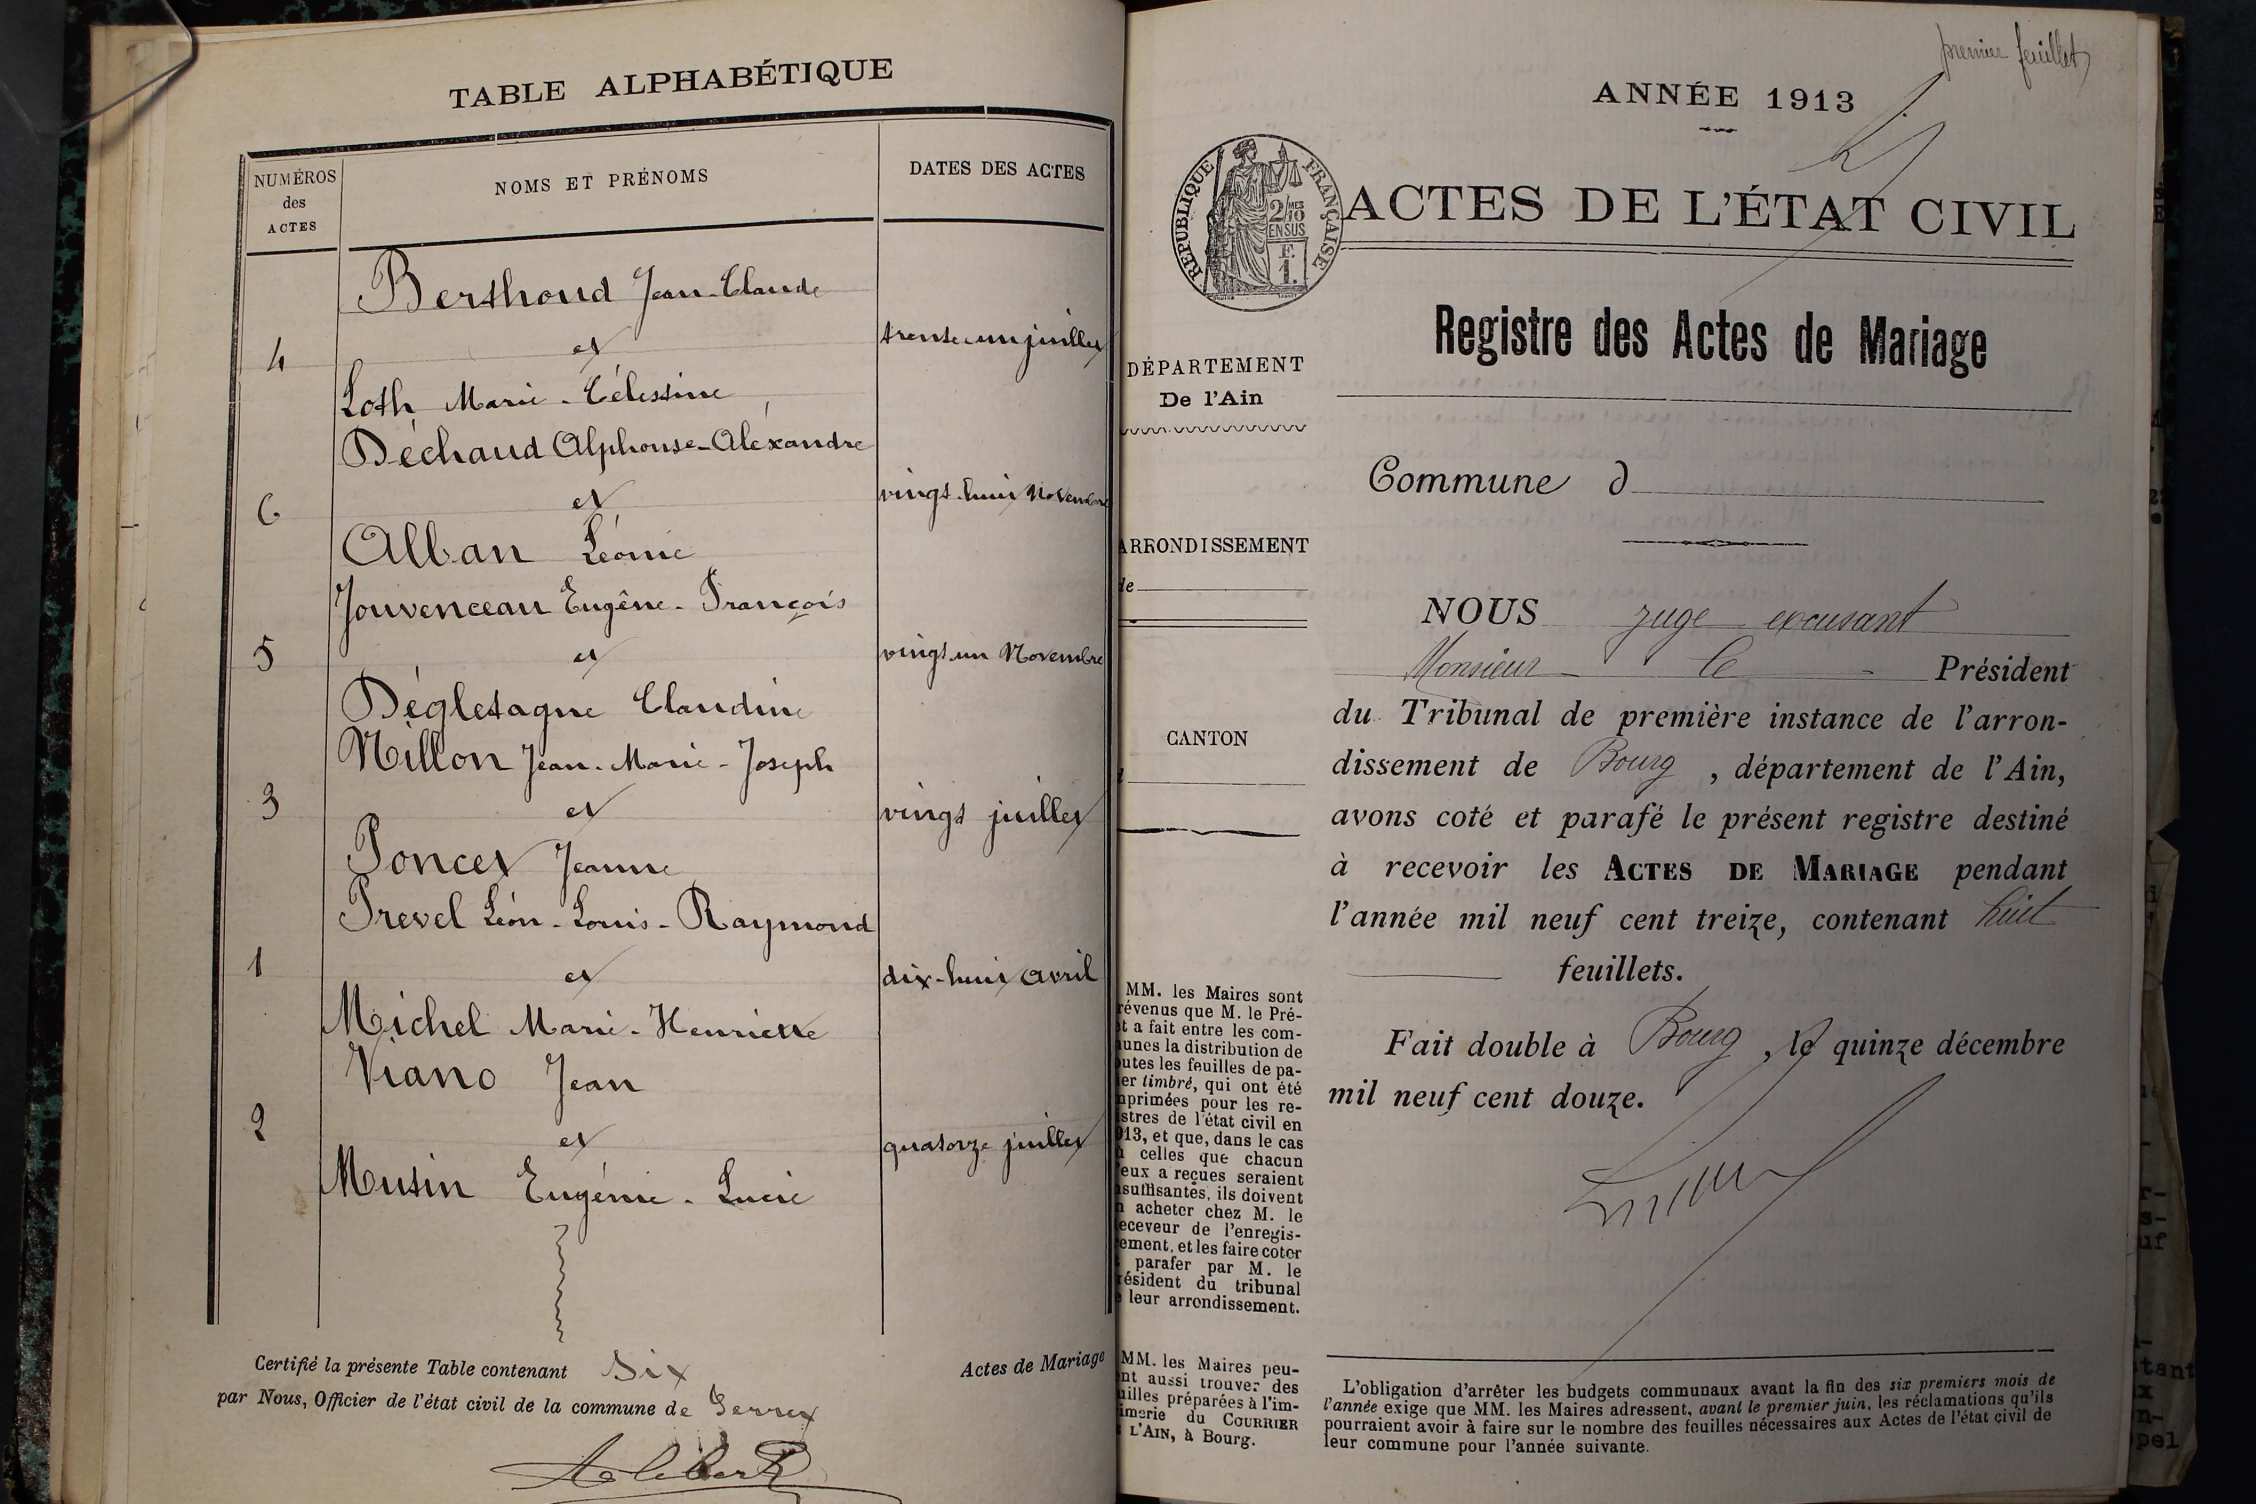 TABLE ALPHABÉTIQUE
NUMÉROS
des
ACTES
NOMS ET PRÉNOMS
DATES DES ACTES
Berthoud Jean-Claude
4 et trente-un juillet
Loth Marie-Célestine
Déchaud Alphonse-Aléxandre
6 et vingt-huit Novembre
Alban Léonie
Jouvenceau Eugêne-François
5 et vingt-un Novembre
Dégletagne Claudine
Nillon Jean-Marie-Joseph
3 et vingt juillet
Poncet Jeanne
Prevel Léon-Louis-Raymond
1 et dix-huit avril
Michel Marie-Henriette
Viano Jean
2 et quatorze juillet
Musin Eugénie-Lucie
Certifié la présente Table contenant Six Actes de Mariage
par Nous, Officier de l'état civil de la commune de
premier feuillet
ANNÉE 1913
RÉPUBLIQUE FRANÇAISE
2/10 MES
EN SUS
F.
1.
ACTES DE L'ÉTAT CIVIL
Registre des Actes de Mariage
DÉPARTEMENT
De l'Ain
Commune d
ARRONDISSEMENT
de
CANTON
NOUS juge excusant
Monsieur le Président
du Tribunal de première instance de l'arron-
dissement de Bourg, département de l'Ain,
avons coté et parafé le présent registre destiné
à recevoir les ACTES DE MARIAGE pendant
l'année mil neuf cent treize, contenant huit
feuillets.
Fait double à Bourg, le quinze décembre
mil neuf cent douze.
MM. les Maires sont
révenus que M. le Pré-
t a fait entre les com-
unes la distribution de
outes les feuilles de pa-
er timbré, qui ont été
mprimées pour les re-
istres de l'état civil en
913, et que, dans le cas
celles que chacun
eux a reçues seraient
nsuffisantes, ils doivent
n acheter chez M. le
eceveur de l'enregis-
ement, et les faire coter
parafer par M. le
résident du tribunal
e leur arrondissement.
MM. les Maires peu-
nt aussi trouver des
uilles préparées à l'im-
imerie du COURRIER
L'AIN, à Bourg.
L'obligation d'arrêter les budgets communaux avant la fin des six premiers mois de
l'année exige que MM. les Maires adressent, avant le premier juin, les réclamations qu'ils
pourraient avoir à faire sur le nombre des feuilles nécessaires aux Actes de l'état civil de
leur commune pour l'année suivante.